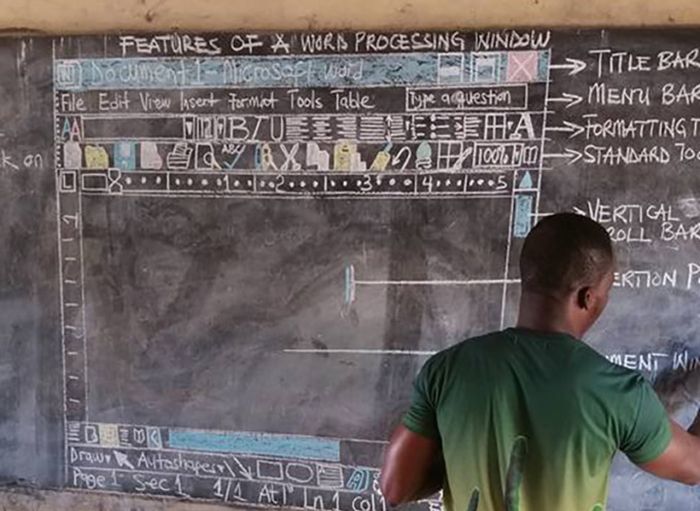 FEATURES OF A WORD PROCESSING WINDOW
W Document 1 - Microsoft Word
TITLE BAR
File Edit View Insert Format Tools Table
Type a question
MENU BAR
A A 12 B I U A
FORMATTING T
ABC 100%
STANDARD TOO
k on
L 8 1 2 3 4 5
VERTICAL
ROLL BAR
1
ERTION P
MENT WIN
Draw Autoshapes
Page 1 Sec 1 1/1 At 1" Ln 1 Col